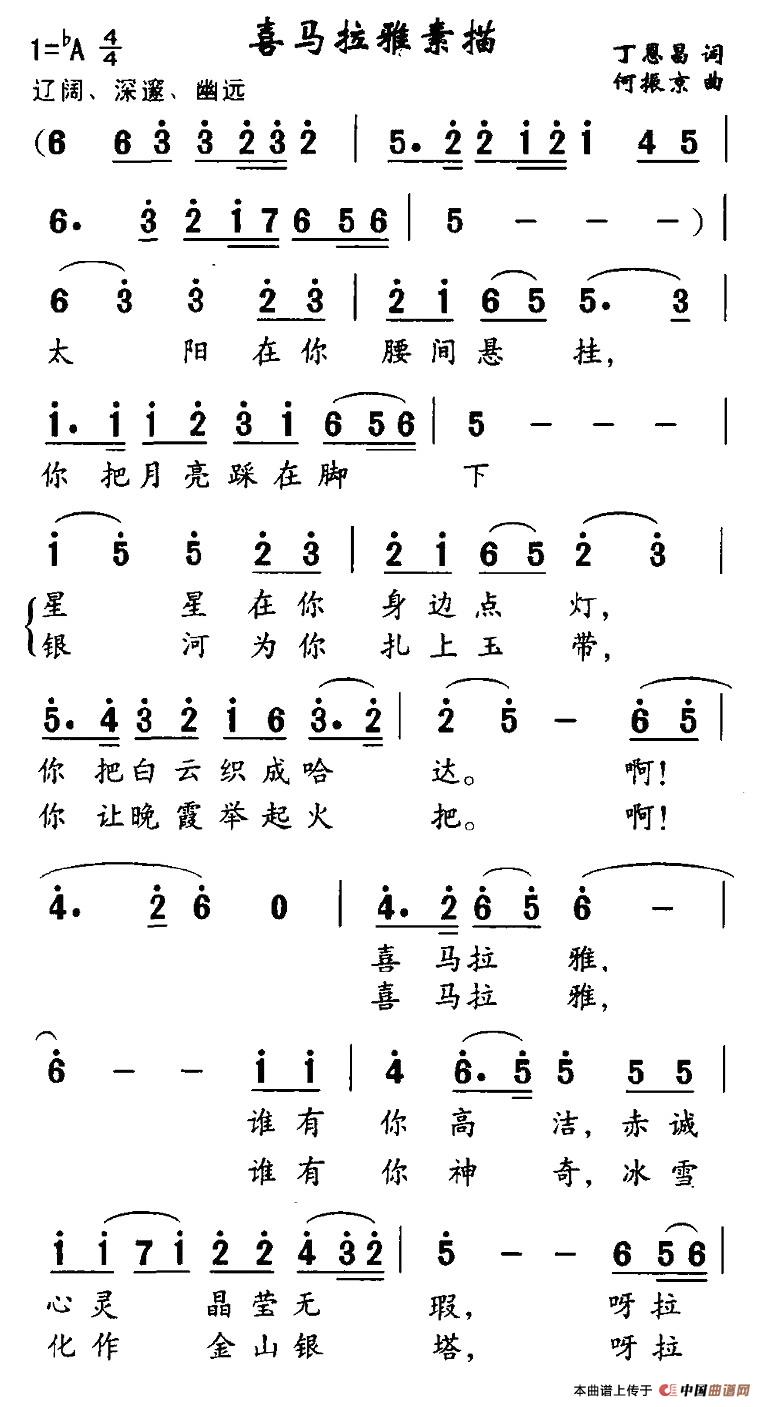 喜马拉雅素描
1=♭A 4/4
丁恩昌 词
何振京 曲
辽阔、深邃、幽远
(6 6 3̇ 3̇ 2̇ 3̇ 2̇ | 5. 2̇ 2̇ 1̇ 2̇ 1̇ 4 5 |
6. 3̇ 2̇ 1̇ 7 6 5 6 | 5 - - - ) |
6 3̇ 3̇ 2̇ 3̇ | 2̇ 1̇ 6 5 5. 3 |
太 阳 在 你 腰 间 悬 挂,
1̇. 1̇ 1̇ 2̇ 3̇ 1̇ 6 5 6 | 5 - - - |
你 把 月 亮 踩 在 脚 下
1̇ 5̇ 5̇ 2̇ 3̇ | 2̇ 1̇ 6 5 2̇ 3̇ |
星 星 在 你 身 边 点 灯,
银 河 为 你 扎 上 玉 带,
5̇. 4̇ 3̇ 2̇ 1̇ 6 3̇. 2̇ | 2̇ 5̇ - 6̇ 5̇ |
你 把 白 云 织 成 哈 达。 啊!
你 让 晚 霞 举 起 火 把。 啊!
4̇. 2̇ 6̇ 0 | 4̇. 2̇ 6̇ 5̇ 6̇ - |
喜 马 拉 雅,
喜 马 拉 雅,
6̇ - - 1̇ 1̇ | 4̇ 6̇. 5̇ 5̇ 5 5 |
谁 有 你 高 洁, 赤 诚
谁 有 你 神 奇, 冰 雪
1̇ 1̇ 7 1̇ 2̇ 2̇ 4̇ 3̇ 2̇ | 5̇ - - 6 5 6 |
心 灵 晶 莹 无 瑕, 呀 拉
化 作 金 山 银 塔, 呀 拉
本曲谱上传于 中国曲谱网